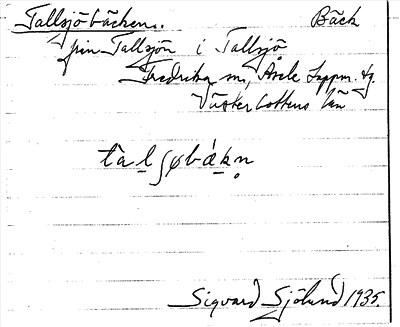 Tallsjöbäcken. Bäck
från Tallsjön i Tallsjö
Fredrika sn, Åsele Lappm. tg.
Västerbottens län
tàlʃøbák̥n̥
Sigvard Sjölund 1935.